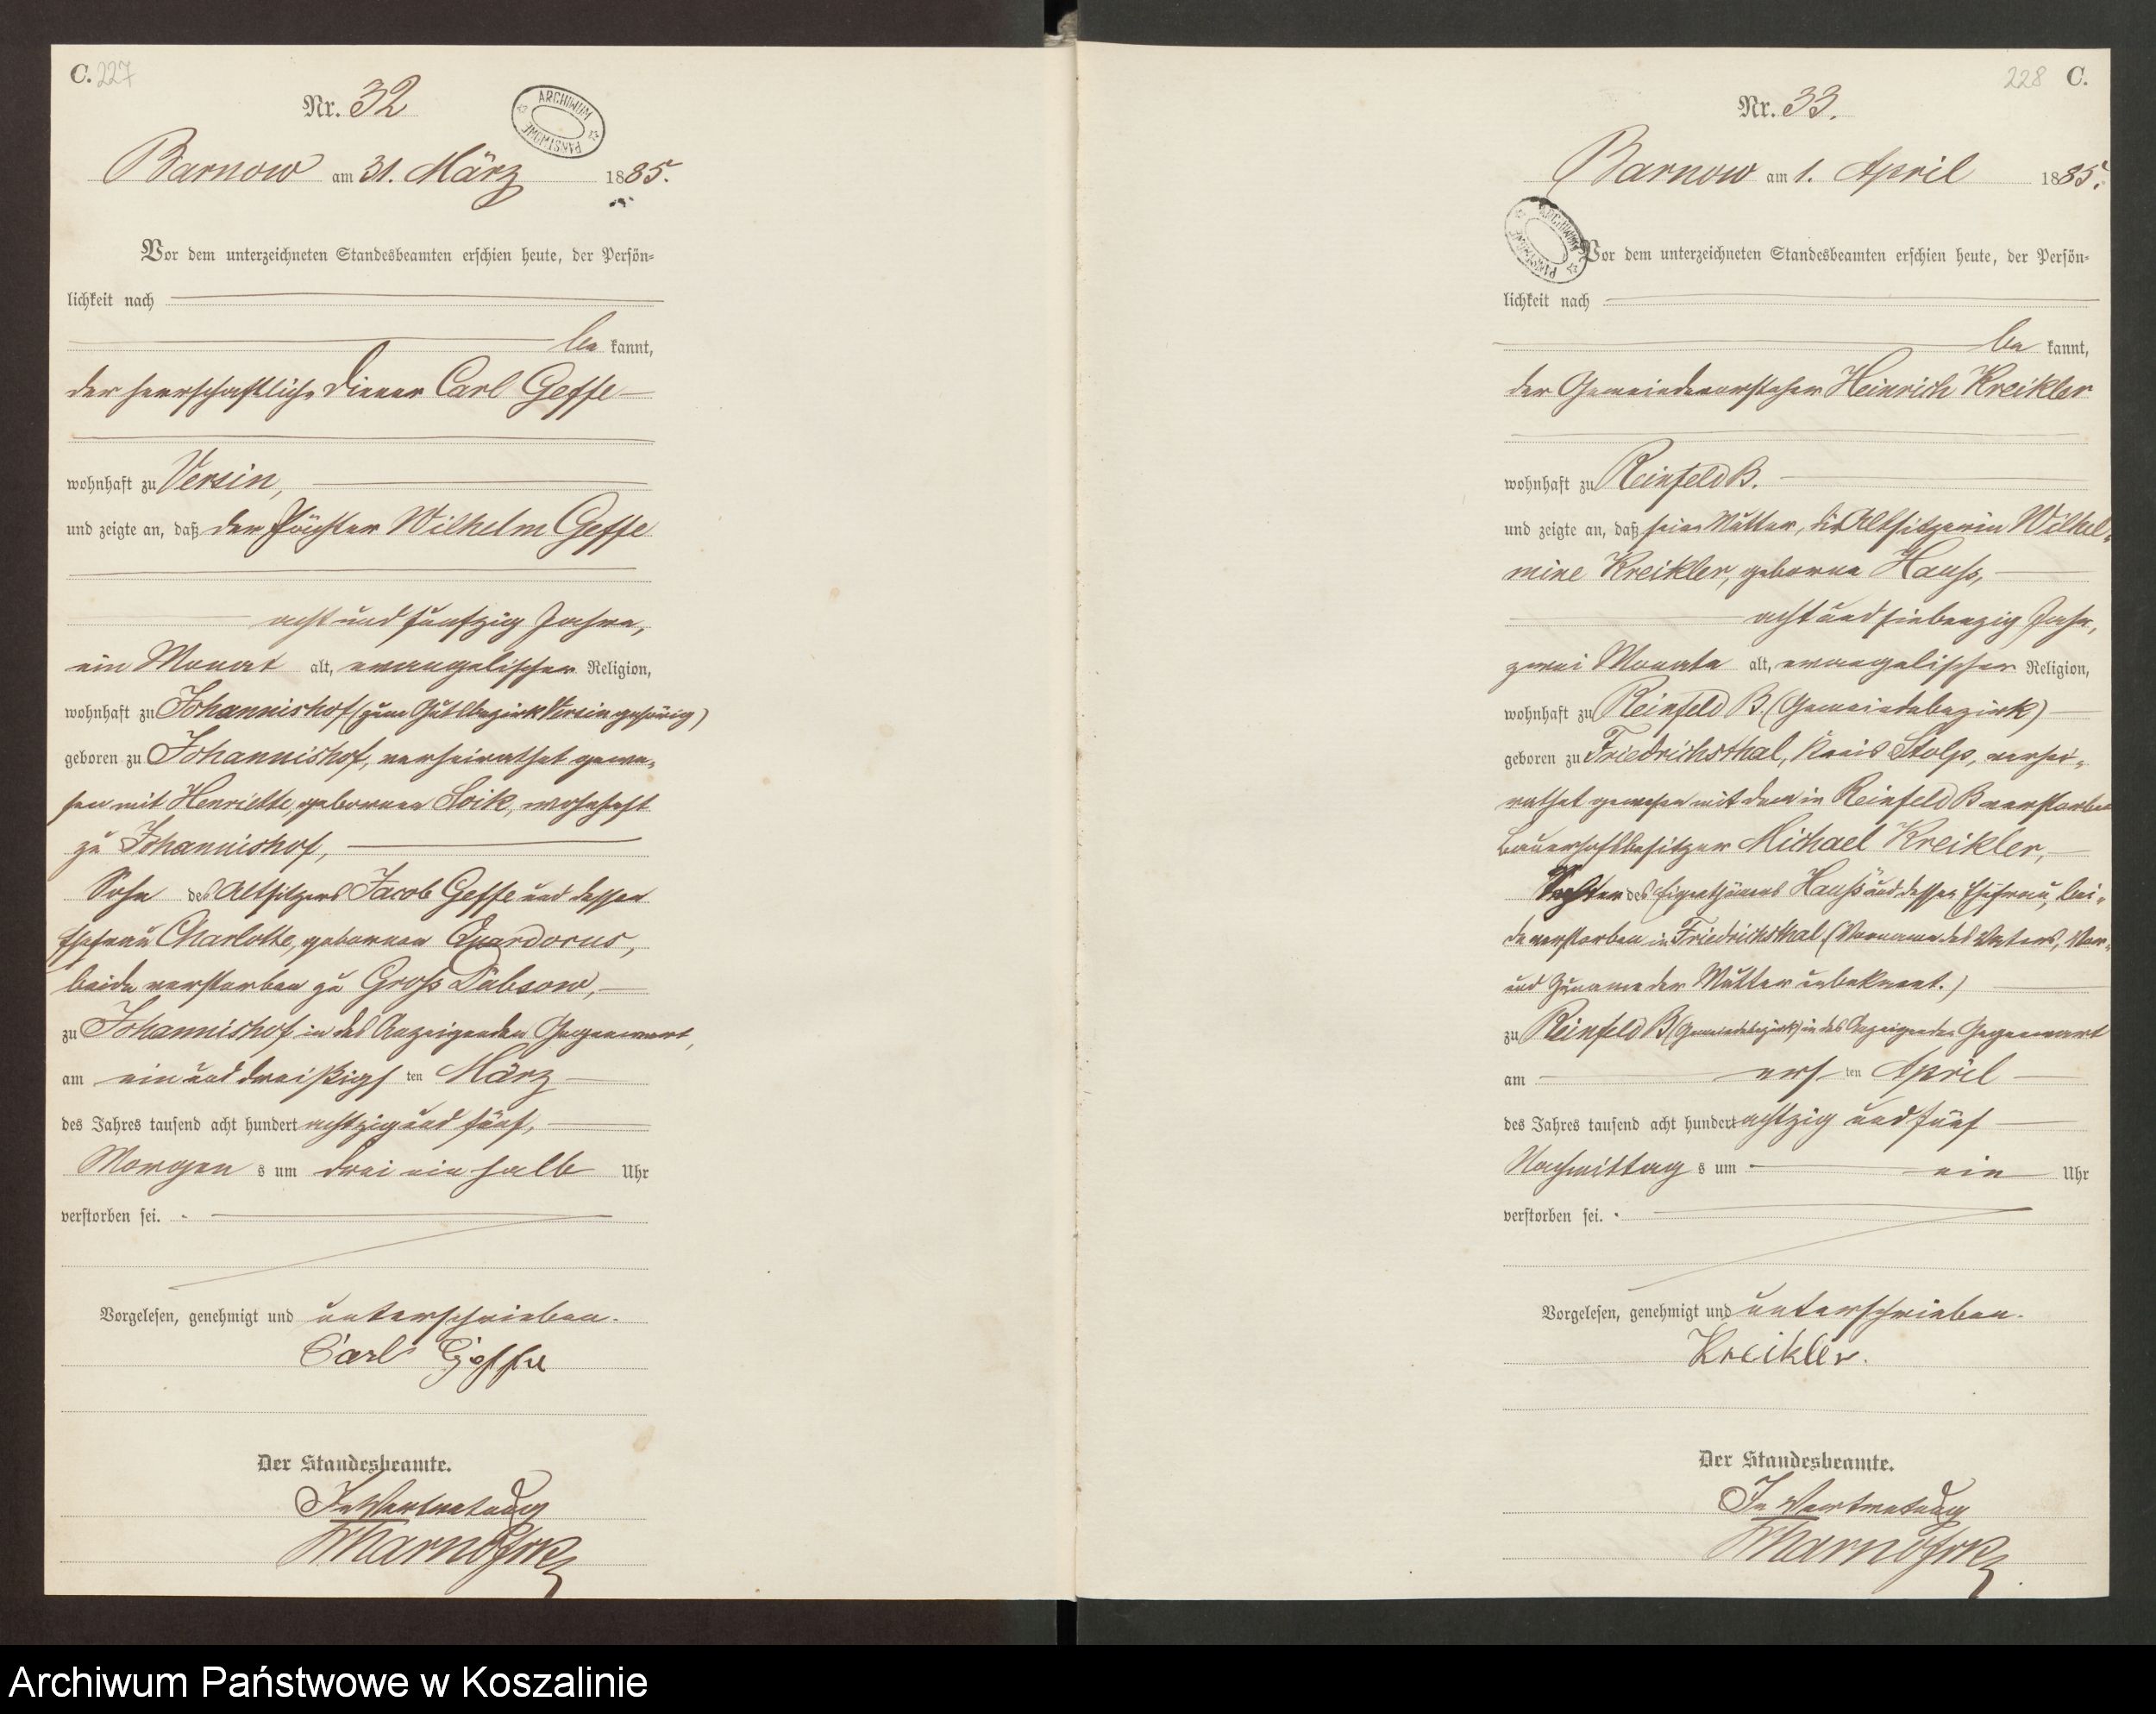 C. 227
Nr. 32
ARCHIWUM PAŃSTWOWE
Barnow am 31. März 1885.
Vor dem unterzeichneten Standesbeamten erschien heute, der Persön-
lichkeit nach
be kannt,
der herrschaftliche Diener Carl Geffe
wohnhaft zu Versin,
und zeigte an, daß der Pächter Wilhelm Geffe
acht und funfzig Jahre,
ein Monat alt, evangelischer Religion,
wohnhaft zu Johannishof (zum Gutsbezirk Versin gehörig)
geboren zu Johannishof, verheirathet gewe-
sen mit Henriette, gebornen Soik, wohnhaft
zu Johannishof,
Sohn des Altsitzers Jacob Geffe und dessen
Ehefrau Charlotte, gebornen Quardorus,
beide verstorben zu Groß Dübsow,
zu Johannishof in des Anzeigenden Gegenwart,
am ein und dreißigs ten März
des Jahres tausend acht hundert achtzig und fünf,
Morgen s um drei ein halb Uhr
verstorben sei.
Vorgelesen, genehmigt und unterschrieben.
Carl Geffe
Der Standesbeamte.
In Vertretung
228 C.
Nr. 33.
Barnow am 1. April 1885.
ARCHIWUM PAŃSTWOWE
Vor dem unterzeichneten Standesbeamten erschien heute, der Persön-
lichkeit nach
be kannt,
der Gemeindevorsteher Heinrich Kreikler
wohnhaft zu Reinfeld B.
und zeigte an, daß seine Mutter, die Altsitzerin Wilhel-
mine Kreikler, geborne Hauß,
acht und siebenzig Jahr,
zwei Monate alt, evangelischer Religion,
wohnhaft zu Reinfeld B. (Gemeindebezirk)
geboren zu Friedrichsthal, Kreis Stolp, verhei-
rathet gewesen mit dem in Reinfeld B verstorben
Bauerhofsbesitzer Michael Kreikler,
Tochter des Eigenthümers Hauß und dessen Ehefrau, bei-
de verstorben in Friedrichsthal (Vorname des Vaters, Vor-
und Zuname der Mutter unbekannt.)
zu Reinfeld B (Gemeindebezirk) in des Anzeigenden Gegenwart
am ers ten April
des Jahres tausend acht hundert achtzig und fünf
Nachmittag s um ein Uhr
verstorben sei.
Vorgelesen, genehmigt und unterschrieben.
Kreikler.
Der Standesbeamte.
In Vertretung
Archiwum Państwowe w Koszalinie